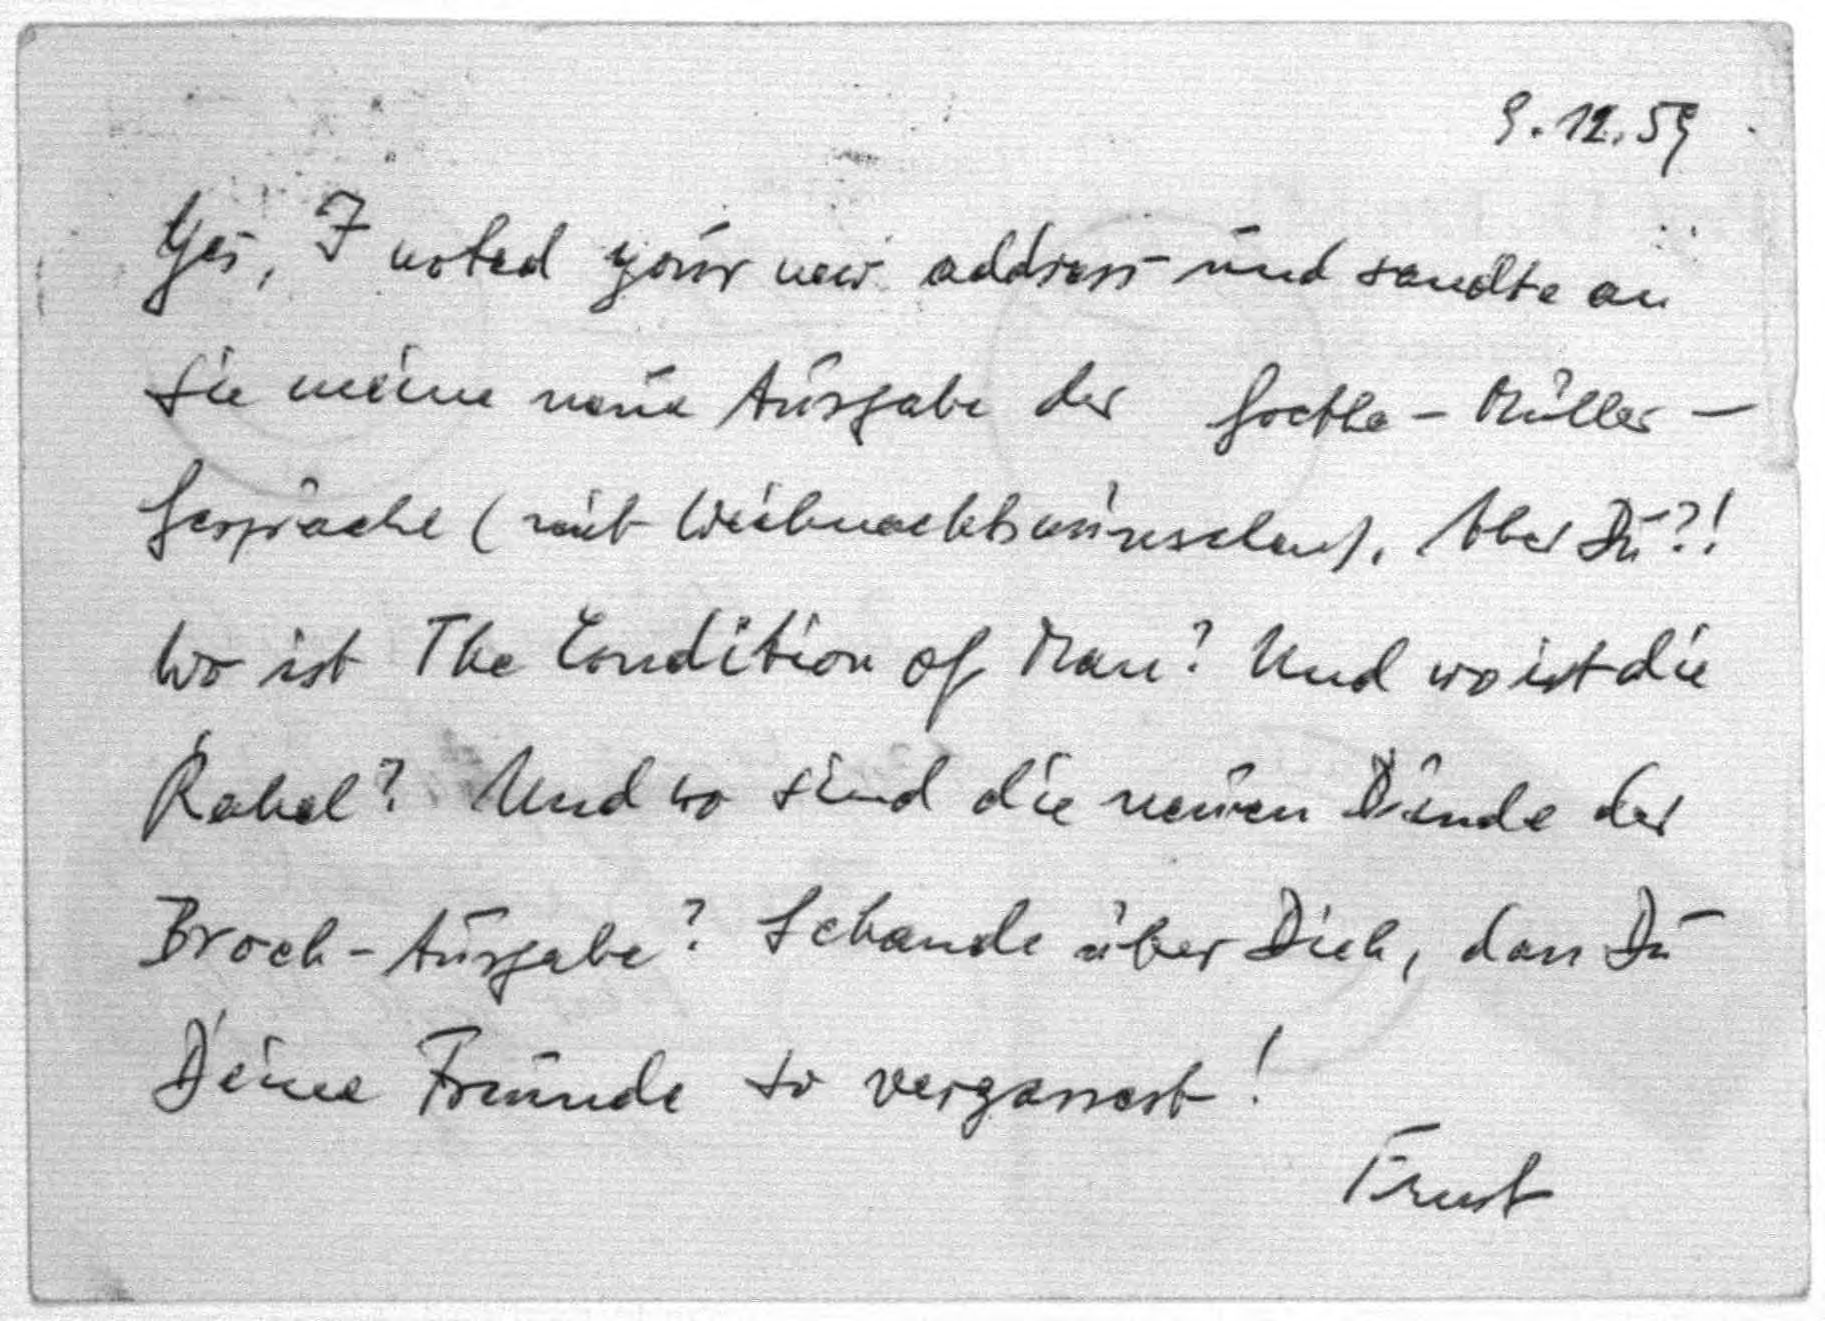 9.12.59
Yes, I noted your new address und sandte an
sie meine neue Ausgabe der Goethe-Müller-
Gespräche (mit Weihnachtswünschen). Aber Du?!
Wo ist The Condition of Man? Und wo ist die
Rahel? Und wo sind die neuen Bände der
Broch-Ausgabe? Schande über Dich, dass Du
Deine Freunde so vergassest!
Ernst